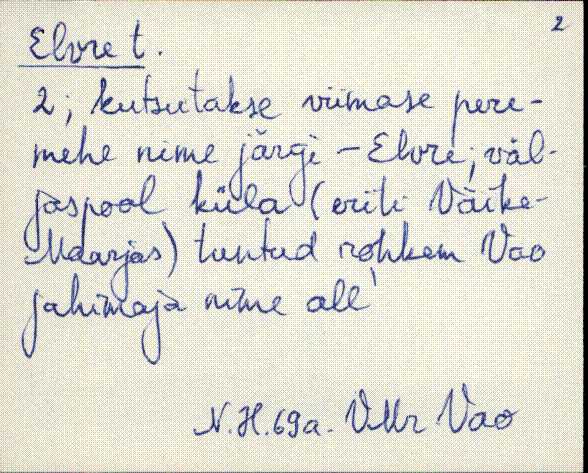 2
Elvre t.
2; kutsutakse viimase pere-
mehe nime järgi – Elvre; väl-
jaspool küla (eriti Väike-
Maarjas) tuntud rohkem Vao
jahimaja nime all'
N.H. 69a. VMr Vao